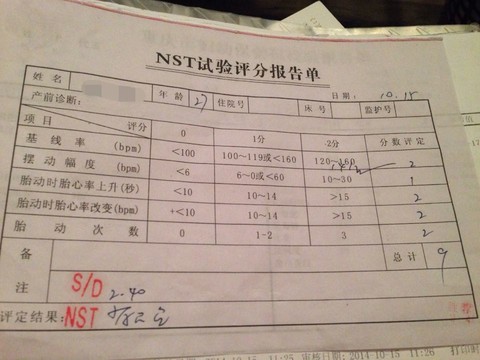 NST试验评分报告单
姓名 年龄 27 住院号 床号 日期: 10.15 监护号
产前诊断:
项目 评分 0 1分 2分 分数评定
基线率 (bpm) <100 100~119或<160 120~160 2
摆动幅度 (bpm) <6 6~0或<60 10~30 1
胎动时胎心率上升(秒) <10 10~14 >15 2
胎动时胎心率改变(bpm) +<10 10~14 >15 2
胎动次数 0 1~2 3 2
备注 S/D 2.40 总计 9
评定结果: NST